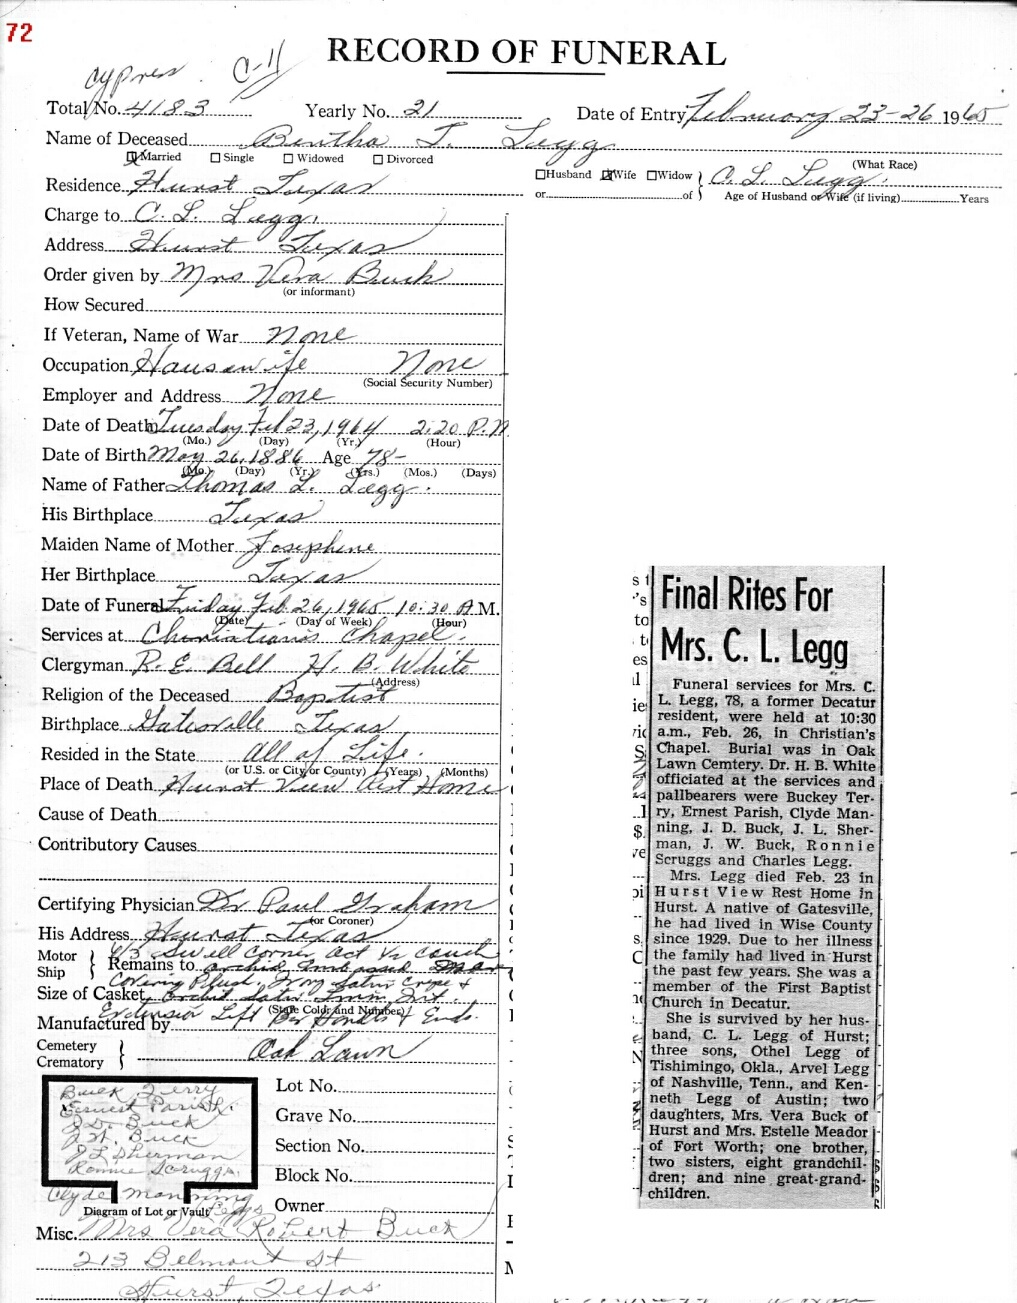 72
RECORD OF FUNERAL
Cypress C-11
Total No. 4183 Yearly No. 21 Date of Entry February 23-26 1965
Name of Deceased Bertha T. Legg
Married Single Widowed Divorced
(What Race)
Husband Wife Widow C. L. Legg.
or of Age of Husband or Wife (if living) Years
Residence Hurst Texas
Charge to C. L. Legg.
Address Hurst Texas
Order given by Mrs Vera Buck
(or informant)
How Secured
If Veteran, Name of War None
Occupation Housewife None
(Social Security Number)
Employer and Address None
Date of Death Tuesday Feb 23, 1964 2:20 P.M
(Mo.) (Day) (Yr.) (Hour)
Date of Birth May 26, 1886 Age 78-
(Mo.) (Day) (Yr.) (Yrs.) (Mos.) (Days)
Name of Father Thomas L. Legg.
His Birthplace Texas
Maiden Name of Mother Josephine
Her Birthplace Texas
Date of Funeral Friday Feb 26, 1965 10:30 A.M.
(Date) (Day of Week) (Hour)
Services at Christians Chapel.
Clergyman R. E. Bell H. B. White
(Address)
Religion of the Deceased Baptist
Birthplace Gatesville Texas
Resided in the State All of Life.
(or U.S. or City or County) (Years) (Months)
Place of Death Hurst View Rest Home
Cause of Death
Contributory Causes
Certifying Physician Dr Paul Graham
(or Coroner)
His Address Hurst Texas
6/3 Swell Corner Oct 1/2 Couch
Motor Ship Remains to orchid Embossed
Covering Plush, Ivory Satin Crepe &
Size of Casket Orchid Satin Int.
(State Color and Number)
Extension Lift Handles & Ends.
Manufactured by
Cemetery
Crematory Oak Lawn
Buck Terry
Ernest Parish.
J.D. Buck
J.W. Buck
J L Sherman
Ronnie Scruggs.
Clyde Manning
Legg
Diagram of Lot or Vault
Lot No.
Grave No.
Section No.
Block No.
Owner
Misc. Mrs Vera Robert Buck
213 Belmont St
Hurst, Texas
Final Rites For
Mrs. C. L. Legg
Funeral services for Mrs. C.
L. Legg, 78, a former Decatur
resident, were held at 10:30
a.m., Feb. 26, in Christian's
Chapel. Burial was in Oak
Lawn Cemtery. Dr. H. B. White
officiated at the services and
pallbearers were Buckey Ter-
ry, Ernest Parish, Clyde Man-
ning, J. D. Buck, J. L. Sher-
man, J. W. Buck, Ronnie
Scruggs and Charles Legg.
Mrs. Legg died Feb. 23 in
Hurst View Rest Home in
Hurst. A native of Gatesville,
he had lived in Wise County
since 1929. Due to her illness
the family had lived in Hurst
the past few years. She was a
member of the First Baptist
Church in Decatur.
She is survived by her hus-
band, C. L. Legg of Hurst;
three sons, Othel Legg of
Tishimingo, Okla., Arvel Legg
of Nashville, Tenn., and Ken-
neth Legg of Austin; two
daughters, Mrs. Vera Buck of
Hurst and Mrs. Estelle Meador
of Fort Worth; one brother,
two sisters, eight grandchil-
dren; and nine great-grand-
children.